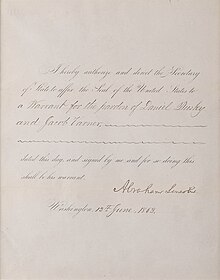 I hereby authorize and direct the Secretary
of State to affix the Seal of the United States to
a Warrant for the pardon of Daniel Dusky
and Jacob Varner,
dated this day, and signed by me and for so doing this
shall be his warrant.
Abraham Lincoln
Washington, 13th June, 1863.